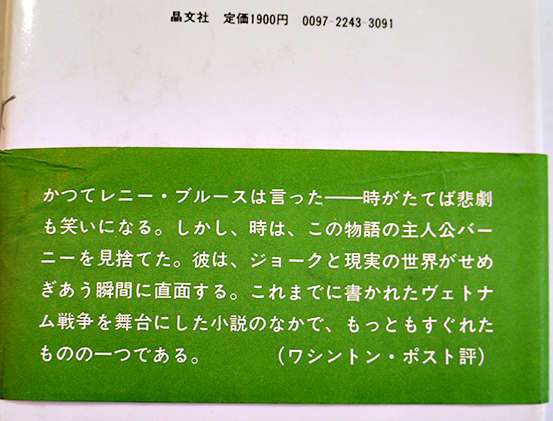 晶文社　定価1900円　0097-2243-3091
かつてレニー・ブルースは言った――時がたてば悲劇
も笑いになる。しかし、時は、この物語の主人公バー
ニーを見捨てた。彼は、ジョークと現実の世界がせめ
ぎあう瞬間に直面する。これまでに書かれたヴェトナ
ム戦争を舞台にした小説のなかで、もっともすぐれた
ものの一つである。　　　（ワシントン・ポスト評）